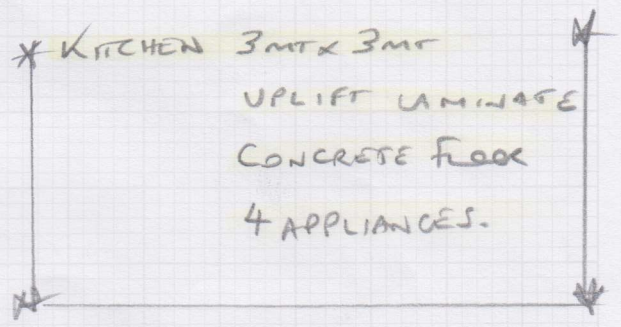 KITCHEN 3MT x 3MT
UPLIFT LAMINATE
CONCRETE FLOOR
4 APPLIANCES.